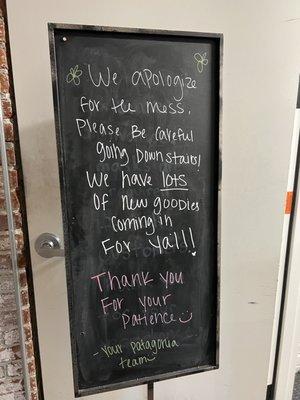 We apologize
for the mess.
Please Be Careful
going Down stairs!
We have lots
of new goodies
coming in
For yall!!
Thank you
For your
Patience
- your patagonia
team